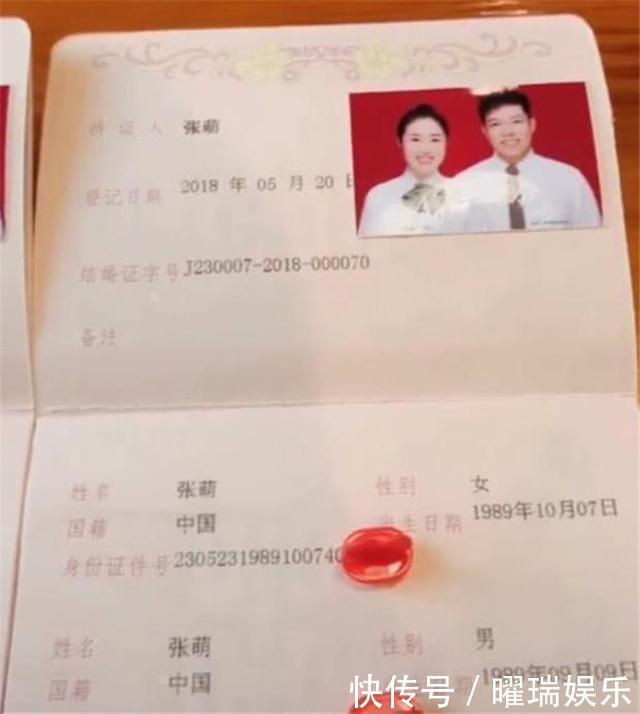 持证人 张萌
登记日期 2018 年 05 月 20 日
结婚证字号 J230007-2018-000070
备注
姓名 张萌 性别 女
国籍 中国 出生日期 1989年10月07日
身份证件号 2305231989100740
姓名 张萌 性别 男
国籍 中国 1989年09月09日
快传号 / 曜瑞娱乐